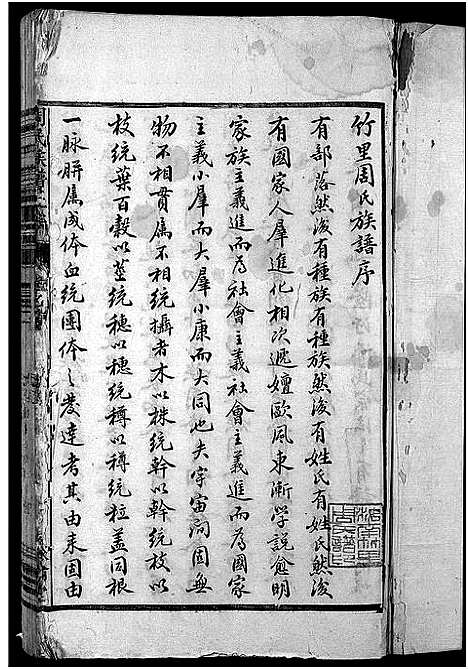 竹里周氏族譜序
有部落然後有種族有種族然後有姓氏有姓氏然後
有國家人羣進化相次遞嬗歐風東漸學說愈明
家族主義進而為社會主義社會主義進而為國家
主義小羣而大羣小康而大同也夫宇宙洞固無
物不相貫屬不相統攝者木以株統幹以幹統枝以
枝統葉百穀以莖統穗以穗統稃以稃統粒蓋同根
一脉胼屬成体血統團体之發達者其由来固由